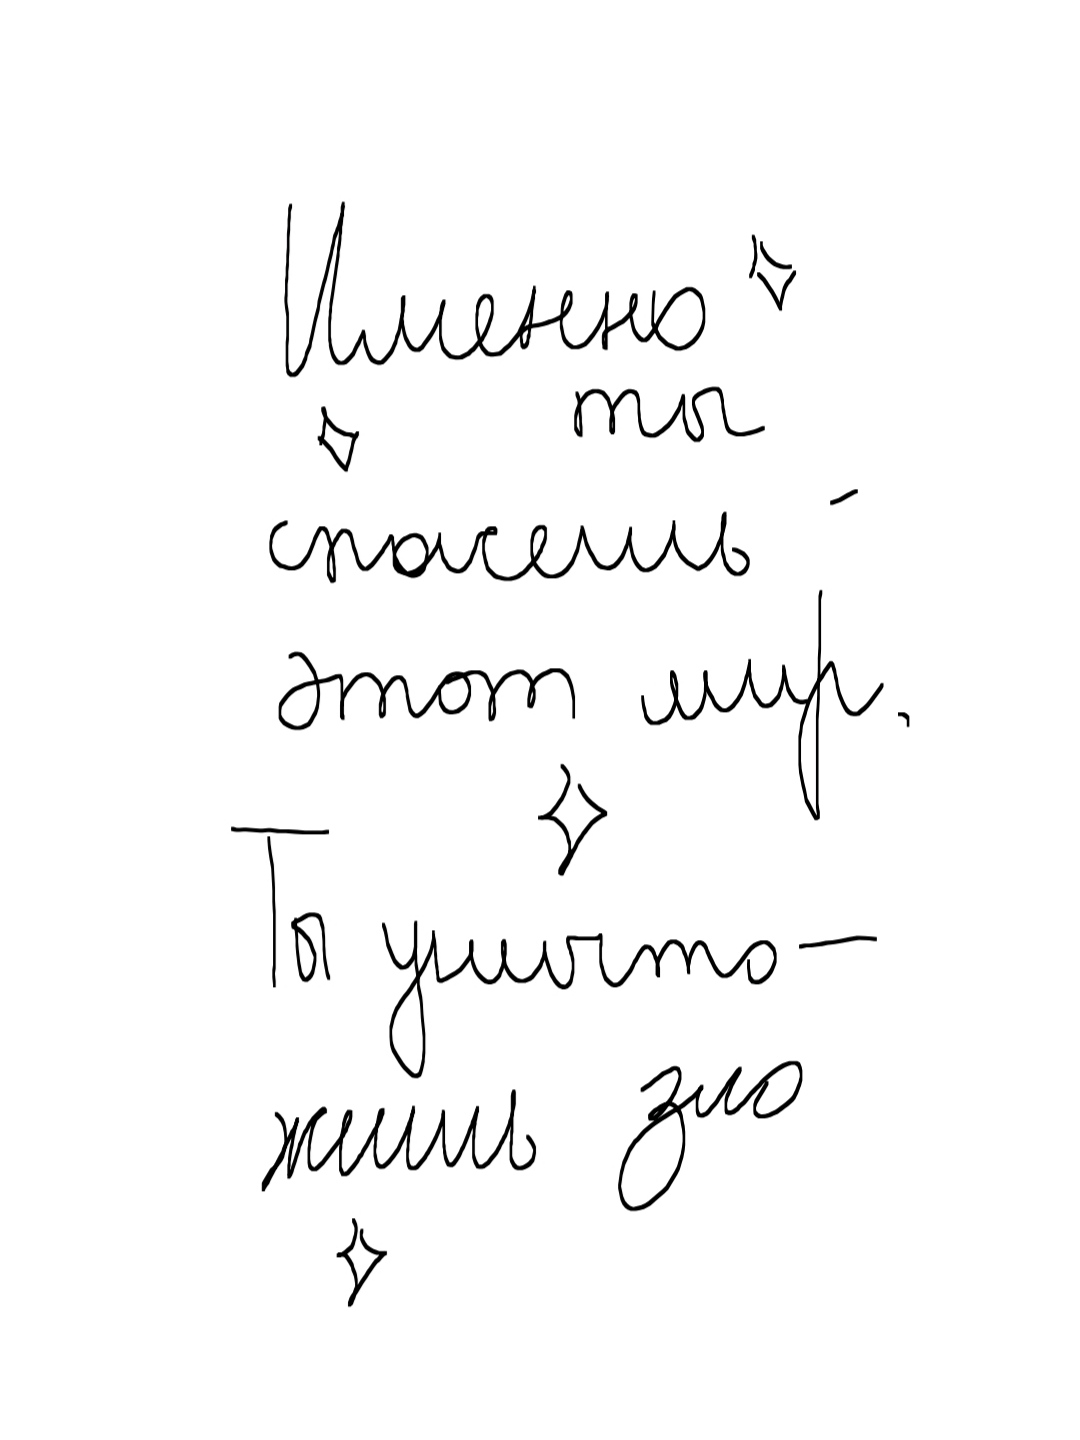 Именно
ты
спасешь
этот мир.
Ты уничто-
жишь зло